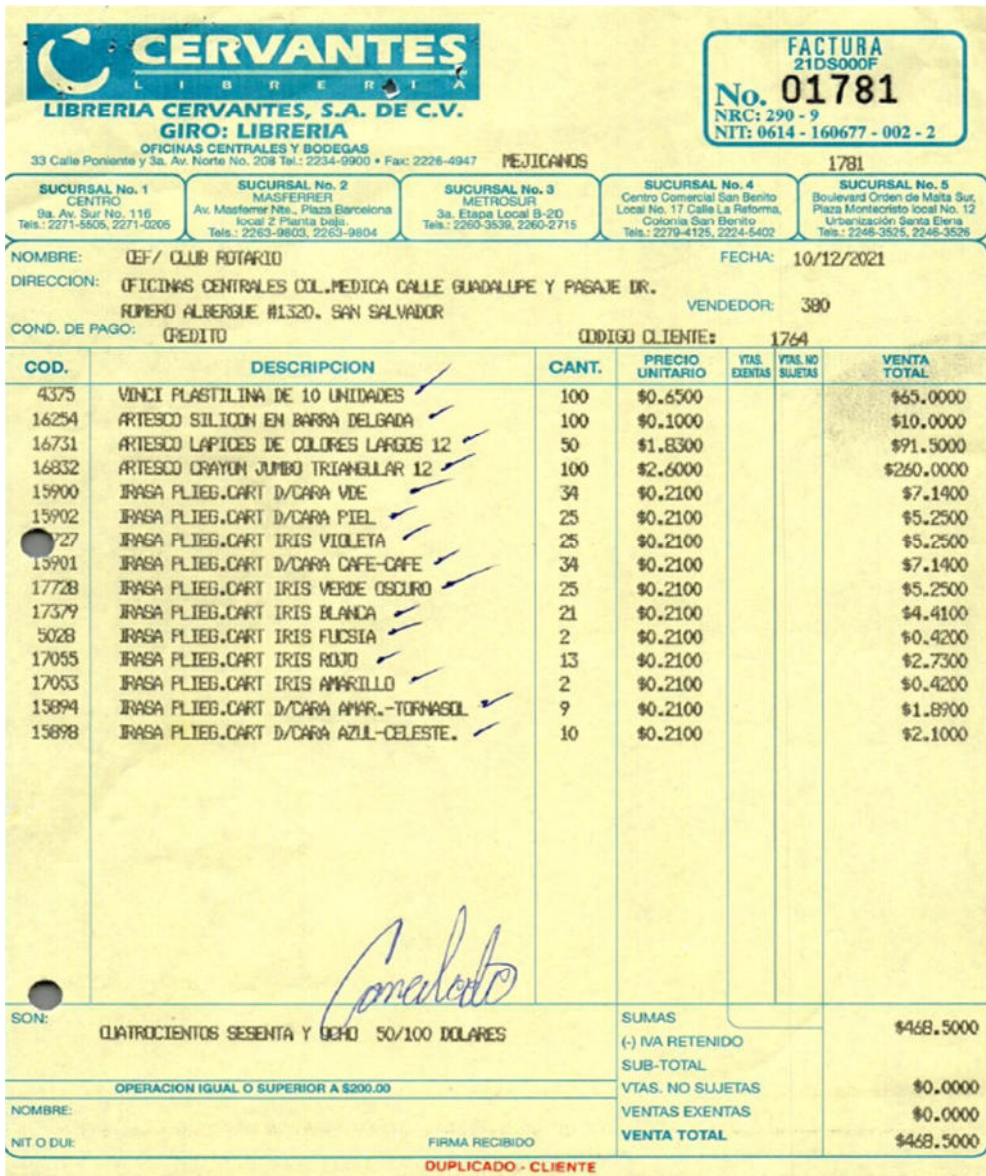 CERVANTES
LIBRERIA
LIBRERIA CERVANTES, S.A. DE C.V.
GIRO: LIBRERIA
OFICINAS CENTRALES Y BODEGAS
33 Calle Poniente y 3a. Av. Norte No. 208 Tel.: 2234-9900 • Fax: 2226-4947
MEJICANOS
FACTURA
21DS000F
No. 01781
NRC: 290 - 9
NIT: 0614 - 160677 - 002 - 2
1781
SUCURSAL No. 1
CENTRO
9a. Av. Sur No. 116
Tels.: 2271-5505, 2271-0205
SUCURSAL No. 2
MASFERRER
Av. Masferrer Nte., Plaza Barcelona
local 2 Planta baja.
Tels.: 2263-9803, 2263-9804
SUCURSAL No. 3
METROSUR
3a. Etapa Local B-20
Tels.: 2260-3539, 2260-2715
SUCURSAL No. 4
Centro Comercial San Benito
Local No. 17 Calle La Reforma,
Colonia San Benito
Tels.: 2279-4125, 2224-5402
SUCURSAL No. 5
Boulevard Orden de Malta Sur,
Plaza Montecristo local No. 12
Urbanización Santa Elena
Tels.: 2246-3525, 2246-3526
NOMBRE: CEF/ CLUB ROTARIO FECHA: 10/12/2021
DIRECCION: OFICINAS CENTRALES COL.MEDICA CALLE GUADALUPE Y PASAJE DR.
ROMERO ALBERGUE #1320. SAN SALVADOR VENDEDOR: 380
COND. DE PAGO: CREDITO CODIGO CLIENTE: 1764
COD. DESCRIPCION CANT. PRECIO UNITARIO VTAS. EXENTAS VTAS. NO SUJETAS VENTA TOTAL
4375 VINCI PLASTILINA DE 10 UNIDADES 100 $0.6500 $65.0000
16254 ARTESCO SILICON EN BARRA DELGADA 100 $0.1000 $10.0000
16731 ARTESCO LAPICES DE COLORES LARGOS 12 50 $1.8300 $91.5000
16832 ARTESCO CRAYON JUMBO TRIANGULAR 12 100 $2.6000 $260.0000
15900 IRASA PLIEG.CART D/CARA VDE 34 $0.2100 $7.1400
15902 IRASA PLIEG.CART D/CARA PIEL 25 $0.2100 $5.2500
727 IRASA PLIEG.CART IRIS VIOLETA 25 $0.2100 $5.2500
15901 IRASA PLIEG.CART D/CARA CAFE-CAFE 34 $0.2100 $7.1400
17728 IRASA PLIEG.CART IRIS VERDE OSCURO 25 $0.2100 $5.2500
17379 IRASA PLIEG.CART IRIS BLANCA 21 $0.2100 $4.4100
5028 IRASA PLIEG.CART IRIS FUCSIA 2 $0.2100 $0.4200
17055 IRASA PLIEG.CART IRIS ROJO 13 $0.2100 $2.7300
17053 IRASA PLIEG.CART IRIS AMARILLO 2 $0.2100 $0.4200
15894 IRASA PLIEG.CART D/CARA AMAR.-TORNASOL 9 $0.2100 $1.8900
15898 IRASA PLIEG.CART D/CARA AZUL-CELESTE. 10 $0.2100 $2.1000
SON: CUATROCIENTOS SESENTA Y OCHO 50/100 DOLARES
SUMAS $468.5000
(-) IVA RETENIDO
SUB-TOTAL
OPERACION IGUAL O SUPERIOR A $200.00
VTAS. NO SUJETAS $0.0000
NOMBRE:
VENTAS EXENTAS $0.0000
NIT O DUI: FIRMA RECIBIDO
VENTA TOTAL $468.5000
DUPLICADO - CLIENTE